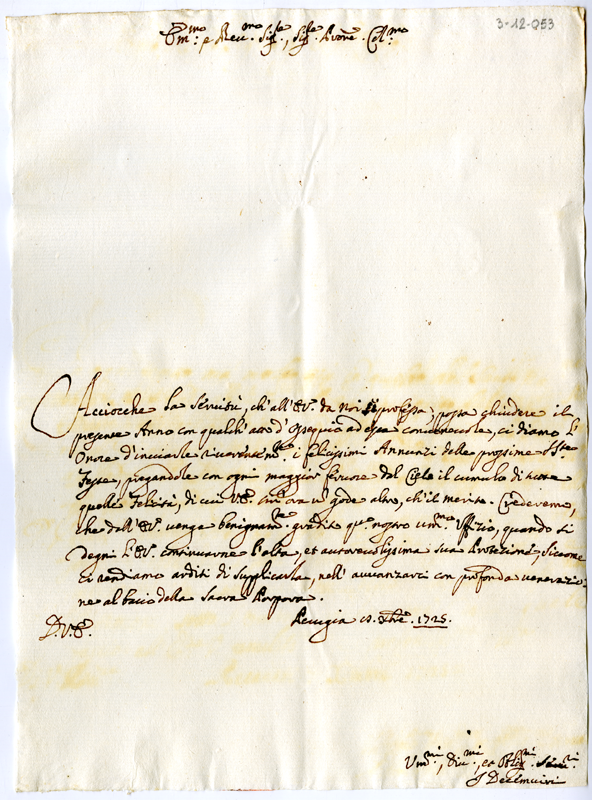 3-12-053
Em.mo e Rev.mo Sig.re, Sig.re P'rone Col.mo
Acciocche la Servitù, ch'all'E.V. da noi si professa, possa chiudere il
presente Anno con qualch'atto d'ossequio ad essa convenevole, ci diamo l'
Onore d'inviarle riverentem.te i felicissimi Annunzi delle prossime S.te
Feste, pregandole con ogni maggior fervore dal Cielo il cumulo di tutte
quelle Felicità, di cui V.E. gode altro, ch'il merito. Crederemo,
che dall'E.V. venga benignam.te gradito questo nostro um.mo Uffizio, quando si
degni l'E.V. continuarne l'alta, et autorevolissima sua Protezione, siccome
ci rendiamo arditi di supplicarla, nell'avvanzarci con profonda venerazio-
ne al bacio della Sacra Porpora.
D.V.E. Perugia Xbre. 1725.
Um.mi, Div.mi, et Obl.mi Serv.ri
J Decemviri